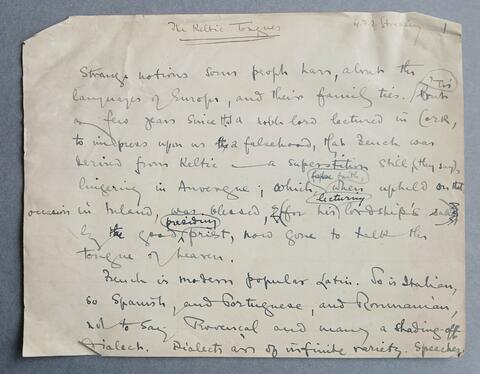 The Keltic Tongues
1
Strange notions some people have, about the
languages of Europe, and their family ties. 'Tis but
a few years since that a noble lord lectured in Cork,
to impress upon us the falsehood, that French was
derived from Keltic — a superstition still (they say)
lingering in Auvergne; which, when upheld on that
lecturing
occasion in Ireland, was blessed, for his lordship's
by the good presiding priest, now gone to talk the
tongue of heaven.
French is modern popular Latin. So is Italian,
so Spanish, and Portuguese, and Roumanian,
not to say Provençal and many a shading-off
dialect. Dialects are of infinite variety. Speeches